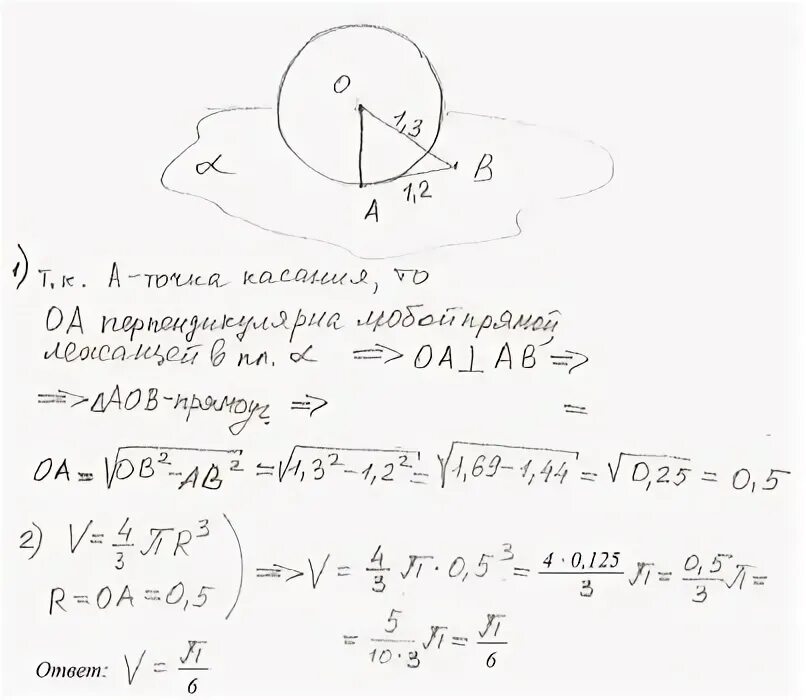 O
1,3
α
B
1,2
A
1) Т.к. А-точка касания, то
ОА перпендикулярна любой прямой,
лежащей в пл. α => OA⊥AB =>
=> ΔAOB-прямоуг =>   =
OA = √OB² - AB² = √1,3² - 1,2² = √1,69 - 1,44 = √0,25 = 0,5
2) V = 4/3 πR³
R = OA = 0,5 ) => V = 4/3 π · 0,5³ = 4 · 0,125/3 π = 0,5/3 π =
= 5/10·3 π = π/6
Ответ: V = π/6